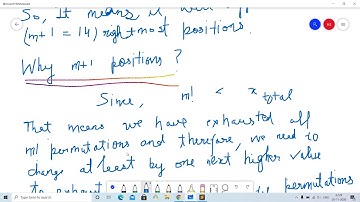 So, It means it will
(m+1 = 14) right most positions.
Why m+1 positions ?
Since, m! < x total
That means we have exhausted all
m! permutations and therefore, we need to
change at least by one next higher value
to exhaust permutations